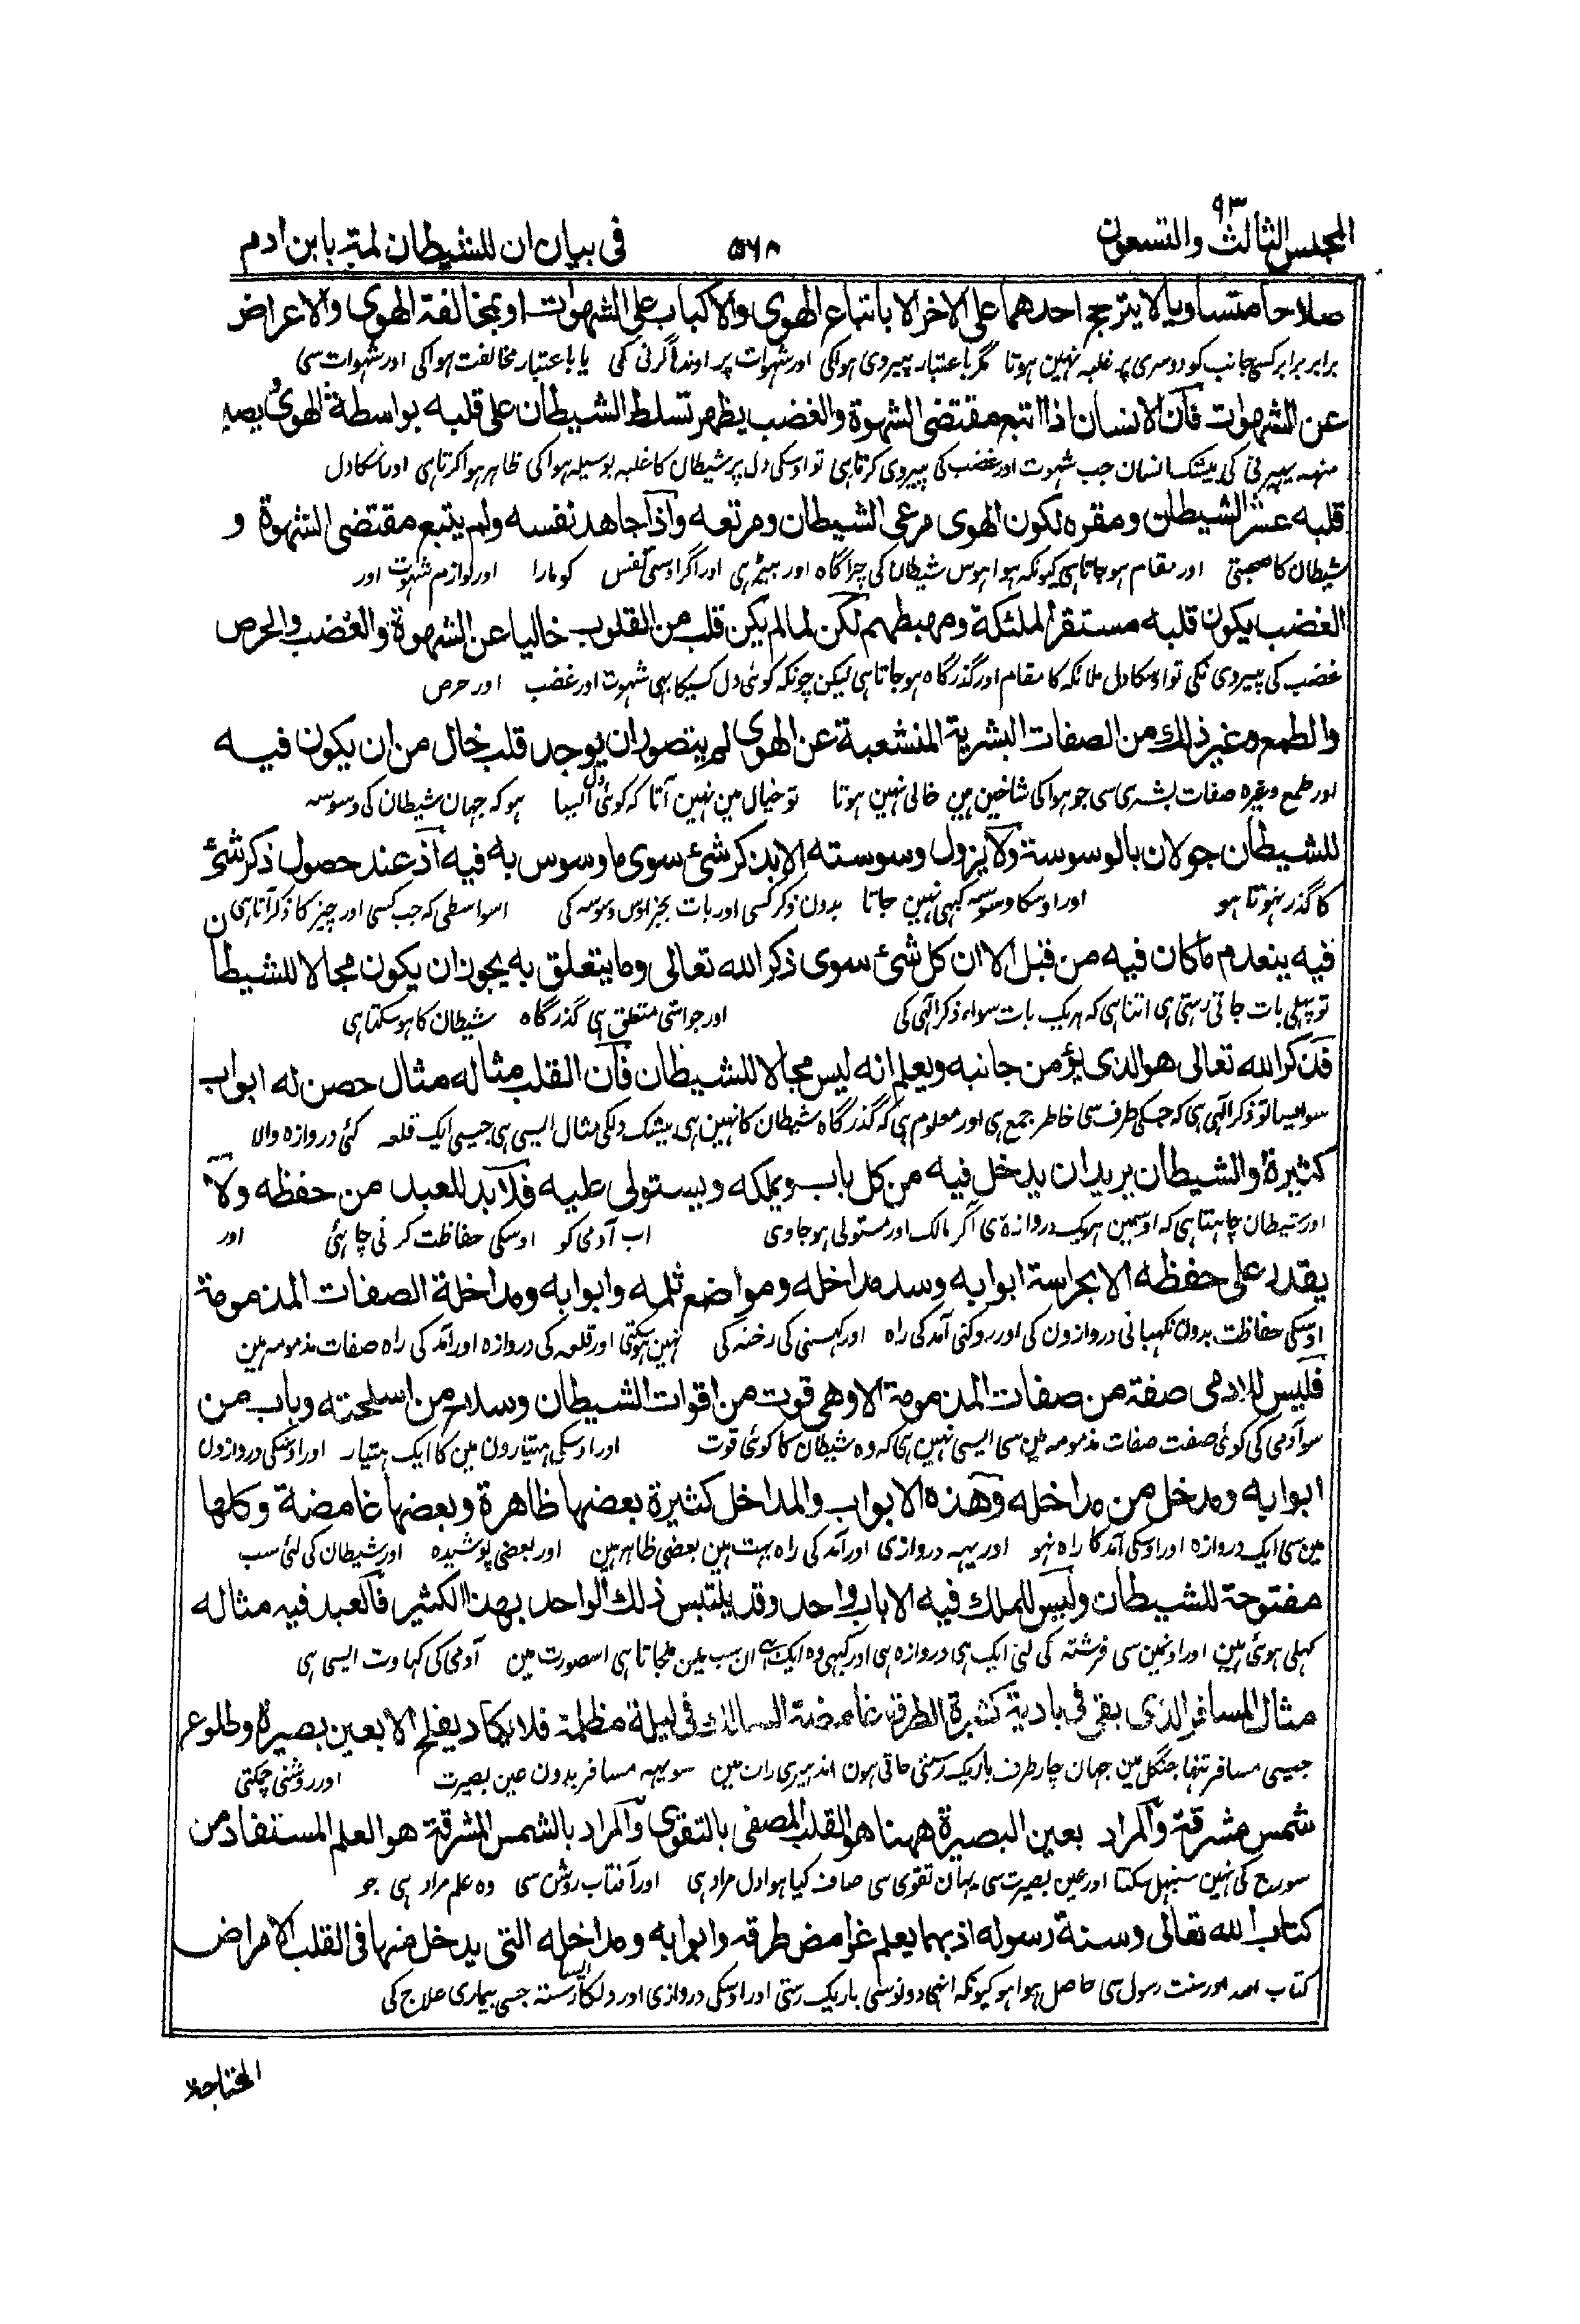 المجلس الثالث والتسعون ٩٣
٥٦٨
فى بيان ان للشيطان لمة بابن ادم
صلاحا متساويا لا يترجح احدهما على الاخر الا باتباع الهوى والاكباب على الشهوات او بمخالفة الهوى والاعراض
برابر برابر کسی جانب کو دوسری پر غلبہ نہین ہوتا مگر باعتبار پیروی ہوا کی اور شہوات پر اوندہا گرنی کی یا باعتبار مخالفت ہوا کی اور شہوات سی
عن الشهوات فان الانسان اذا اتبع مقتضى الشهوة والغضب يظهر تسلط الشيطان على قلبه بواسطة الهوى ويصير
منہہ پہیرنی کی بیشک انسان جب شہوت اور غضب کی پیروی کرتا ہی تو اوسکی دل پر شیطان کا غلبہ بوسیلہ ہوا کی ظاہر ہوا کرتا ہی اور اسکا دل
قلبه عش الشيطان ومقره لكون الهوى مرعى الشيطان ومرتعه واذا جاهد نفسه ولم يتبع مقتضى الشهوة و
شیطان کا اور مقام ہو جاتا ہی کیونکہ ہوا ہوس شیطان کی چراگاہ اور بیڑ ہی اور اگر اوسنی نفس کو مارا اور لوازم شہوت اور
الغضب يكون قلبه مستقر الملئكة ومهبطهم لكن لما لم يكن قلب من القلوب خاليا عن الشهوة والغضب والحرص
غضب کی پیروی نکی تو اوسکا دل ملائکہ کا مقام اور گذرگاہ ہو جاتا ہی لیکن چونکہ کوئی دل کسیکا بہی شہوت اور غضب اور حرص
والطمع وغير ذلك من الصفات البشرية المنشعبة عن الهوى لم يتصور ان يوجد قلب خال من ان يكون فيه
اور طمع وغیرہ صفات بشری سی جو ہوا کی شاخین ہین خالی نہین ہوتا تو خیال مین نہین آتا کہ کوئی دل ایسا ہو کہ جہان شیطان کی وسوسہ
للشيطان جولان بالوسوسة ولا يزول وسوسته الا بذكر شئ سوى ما وسوس به فيه اذ عند حصول ذكر شئ
کا گذر نہوتا ہو اور اوسکا وسوسہ کبہی نہین جاتا بدون ذکر کسی اور بات بجز اوس وسوسہ کی اسواسطی کہ جب کسی اور چیز کا ذکر آتا ہی
فيه ينعدم ما كان فيه من قبل الا ان كل شئ سوى ذكر الله تعالى وما يتعلق به يجوز ان يكون مجالا للشيطان
تو پہلی بات جاتی رہتی ہی اتنا ہی کہ ہر یک بات سواء ذکر الہی کی اور جو اسی متعلق ہی گذرگاہ شیطان کا ہو سکتا ہی
فذكر الله تعالى هو الذى يؤمن جانبه ويعلم انه ليس مجالا للشيطان فان القلب مثاله مثال حصن له ابواب
سو ایسا تو ذکر الہی ہی کہ جسکی طرف سی خاطر جمع ہی اور معلوم ہی کہ گذرگاہ شیطان کا نہین ہی بیشک دلکی مثال ایسی ہی جیسی ایک قلعہ کئی دروازہ والا
كثيرة والشيطان يريد ان يدخل فيه من كل باب ويملكه ويستولى عليه فلابد للعبد من حفظه ولا
اور شیطان چاہتا ہی کہ اوسمین ہر یک دروازہ سی آکر مالک اور مستولی ہو جاوی اب آدمی کو اوسکی حفاظت کرنی چاہئی اور
يقدر على حفظه الا بحراسة ابوابه وسد مداخله ومواضع ثلمه وابوابه ومداخلة الصفات المذمومة
اوسکی حفاظت بدون نگہبانی دروازون کی اور روکنی آمد کی راہ اور کہسنی کی رخنہ کی نہین ہو سکتی اور قلعہ کی دروازہ اور آمد کی راہ صفات مذمومہ ہین
فليس للادمى صفة من صفات المذمومة الا وهى قوت من اقوات الشيطان وسلاح من اسلحته وباب من
سو آدمی کی کوئی صفت صفات مذمومہ مین سی ایسی نہین ہی کہ وہ شیطان کا کوئی قوت اور اوسکی ہتیارون مین کا ایک ہتیار اور اوسکی دروازون
ابوابه ومدخل من مداخله وهذه الابواب والمداخل كثيرة بعضها ظاهرة وبعضها غامضة وكلها
مین سی ایک دروازہ اور اوسکی آمد کا راہ نہو اور یہہ دروازی اور آمد کی راہ بہت ہین بعضی ظاہر ہین اور بعضی پوشیدہ اور شیطان کی لئی سب
مفتوحة للشيطان وليس للملك فيه الا باب واحد وقد يلتبس ذلك الواحد بهذا الكثير فالعبد فيه مثاله
کہلی ہوئی ہین اور اونمین سی فرشتہ کی لئی ایک ہی دروازہ ہی اور کبہی وہ ایک ہی ان سب مین ملجاتا ہی اسصورت مین آدمی کی کہاوت ایسی ہی
مثال المسافر الذى بقى فى بادية كثيرة الطرق غامضة المسالك فى ليلة مظلمة فلا يكاد يفلح الا بعين بصيرة وطلوع
جیسی مسافر تنہا جنگل مین جہان چارطرف باریک رستی جاتی ہون اندہیری رات مین سو یہہ مسافر بدون عین بصیرت اور روشنی چمکتی
شمس مشرقة والمراد بعين البصيرة ههنا هو القلب المصفى بالتقوى والمراد بالشمس المشرقة هو العلم المستفاد من
سورج کی نہین سنبہل سکتا اور عین بصیرت سی یہان تقوی سی صاف کیا ہوا دل مراد ہی اور آفتاب روشن سی وہ علم مراد ہی جو
كتاب الله تعالى وسنة رسوله اذ بهما يعلم غوامض طرقه وابوابه ومداخله التى يدخل منها فى القلب الامراض
کتاب اللہ اور سنت رسول سی حاصل ہوا ہو کیونکہ انہی دونوسی باریک رستی اور اوسکی دروازی اور دلکا ایسا رستہ جسی بیماری علاج کی
المحتاجة